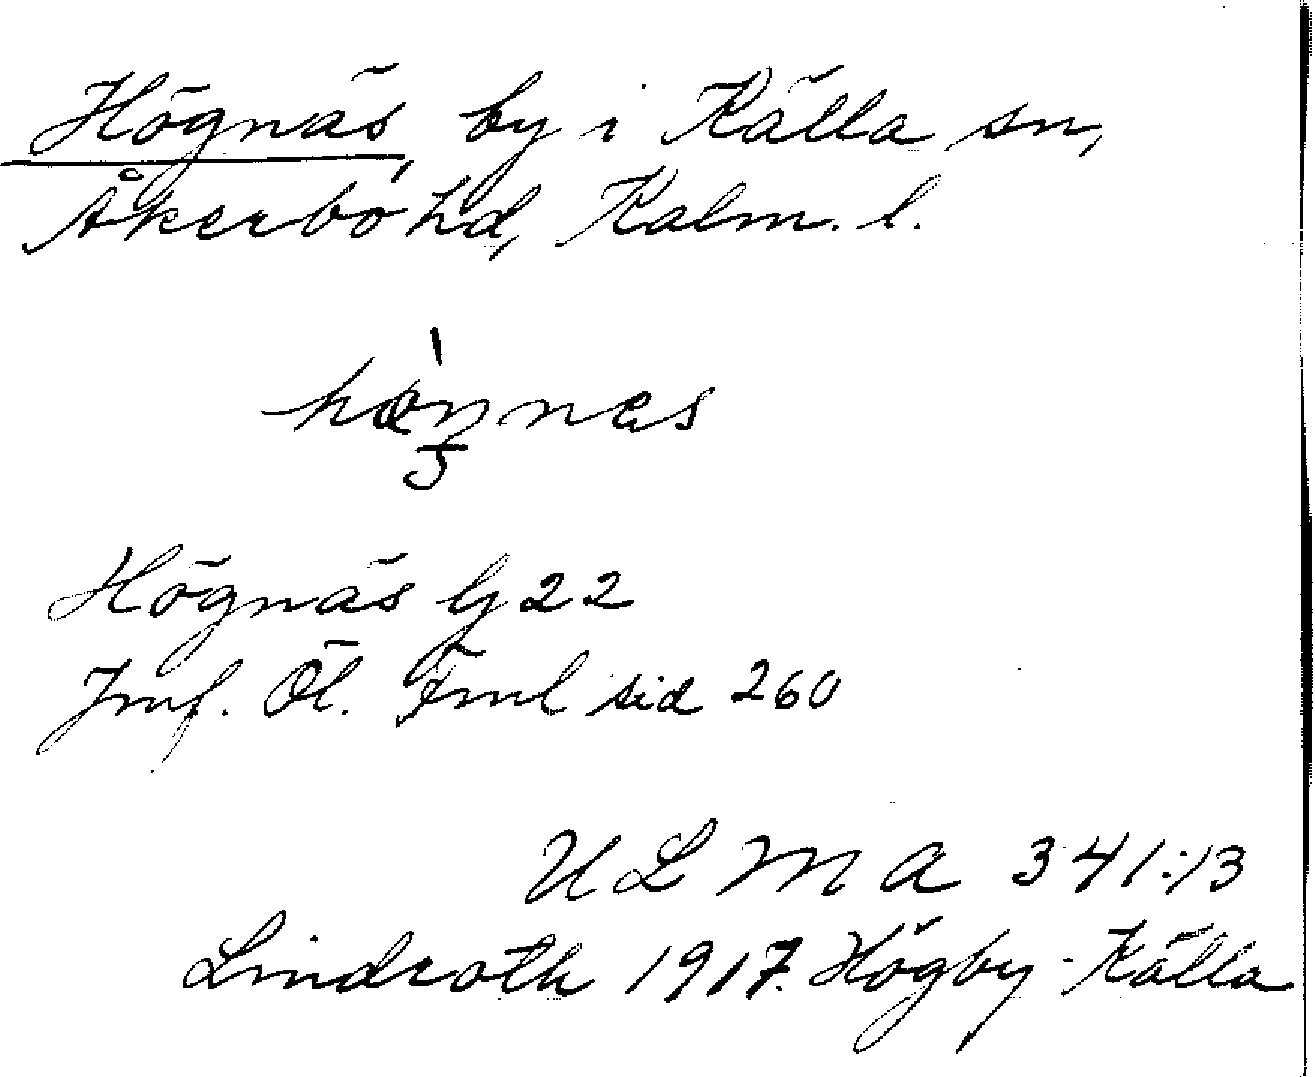 Högnäs, by i Källa sn,
Åkerbo hd, Kalm. l.
Högnäs Gj 22
Jmf. Öl. Fml sid 260
ULMA 341:13
Lindroth 1917. Högby-Källa